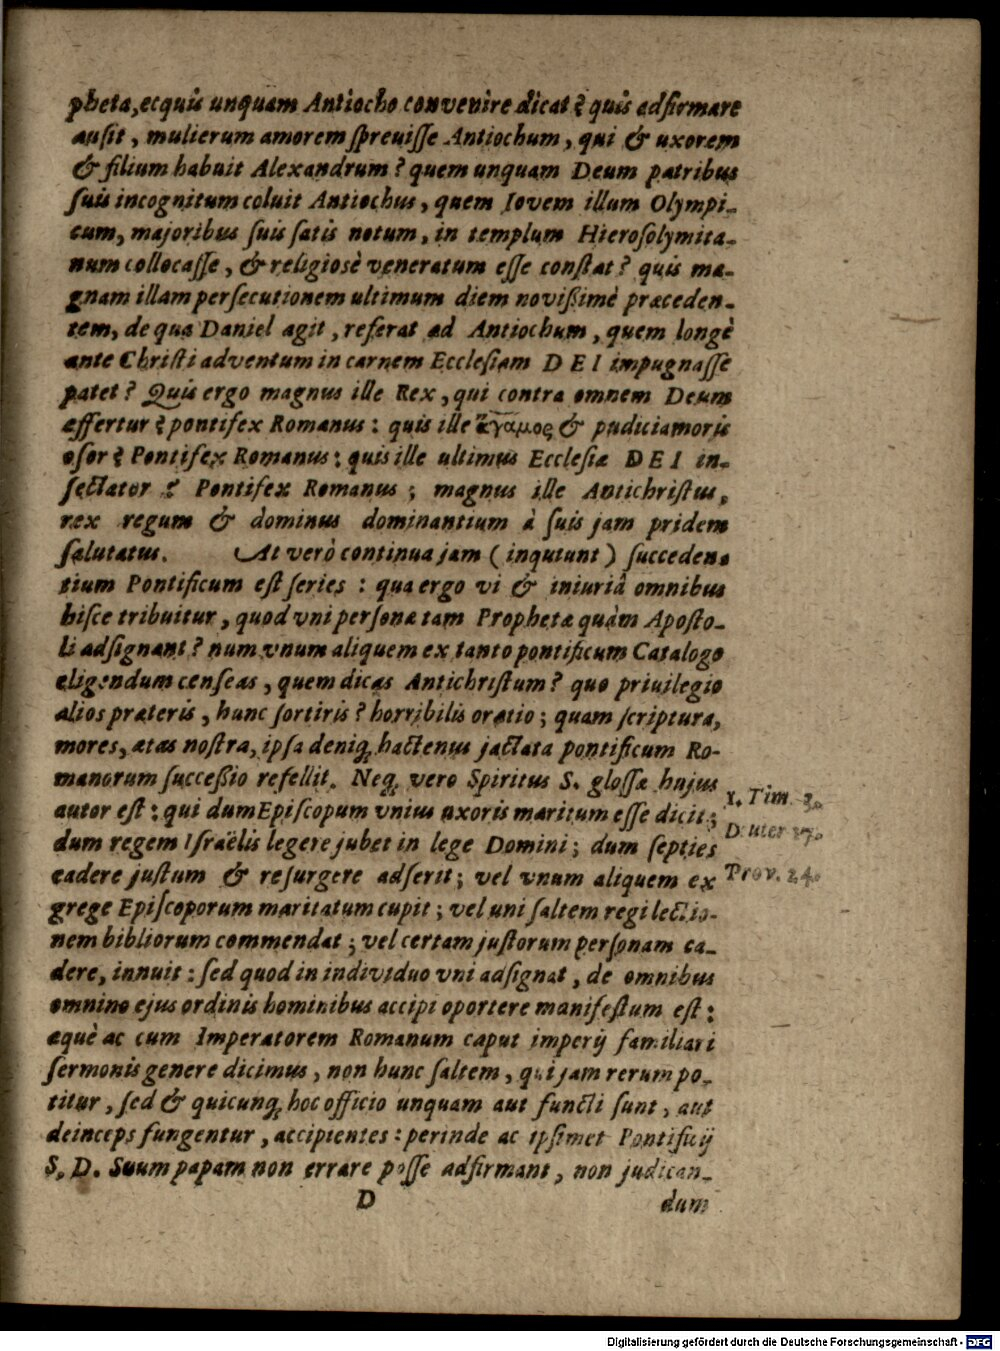 pheta, ecquis unquam Antiocho convenire dicat? quis adfirmare
ausit, mulierum amorem spreuisse Antiochum, qui & uxorem
& filium habuit Alexandrum? quem unquam Deum patribus
suis incognitum coluit Antiochus, quem Iovem illum Olympi-
cum, majoribus suis satis notum, in templum Hierosolymita-
num collocasse, & religiosè veneratum esse constat? quis ma-
gnam illam persecutionem ultimum diem novißimè præceden-
tem, de qua Daniel agit, referat ad Antiochum, quem longè
ante Christi adventum in carnem Ecclesiam DEI impugnasse
patet? Quis ergo magnus ille Rex, qui contra omnem Deum
effertur? pontifex Romanus: quis ille ἄγαμος & pudici amoris
osor? Pontifex Romanus: quis ille ultimus Ecclesiæ DEI in-
sectator? Pontifex Romanus; magnus ille Antichristus,
rex regum & dominus dominantium à suis jam pridem
salutatus. At verò continua jam (inquiunt) succeden-
tium Pontificum est series: qua ergo vi & iniuriâ omnibus
hisce tribuitur, quod vni personæ tam Prophetæ quàm Aposto-
li adsignant? num vnum aliquem ex tanto pontificum Catalogo
eligendum censeas, quem dicas Antichristum? quo priuilegio
alios præteris, hunc sortiris? horribilis oratio; quam scriptura,
mores, ætas nostra, ipsa deniq; hactenus jactata pontificum Ro-
manorum succeßio refellit. Neq; vero Spiritus S. glossæ hujus
autor est: qui dum Episcopum vnius uxoris maritum esse dicit;
dum regem Israëlis legere jubet in lege Domini; dum septies
cadere justum & resurgere adserit; vel vnum aliquem ex
grege Episcoporum maritatum cupit; vel uni saltem regi lectio-
nem bibliorum commendat; vel certam justorum personam ca-
dere, innuit: sed quod in individuo vni adsignat, de omnibus
omnino ejus ordinis hominibus accipi oportere manifestum est:
æquè ac cum Imperatorem Romanum caput imperij familiari
sermonis genere dicimus, non hunc saltem, qui jam rerum po-
titur, sed & quicunq; hoc officio unquam aut functi sunt, aut
deinceps fungentur, accipientes: perinde ac ipsimet Pontificij
S. D. Suum papam non errare posse adfirmant, non judican-
D dum
1. Tim. 3.
Deuter 17.
Prov. 24.
Digitalisierung gefördert durch die Deutsche Forschungsgemeinschaft - DFG